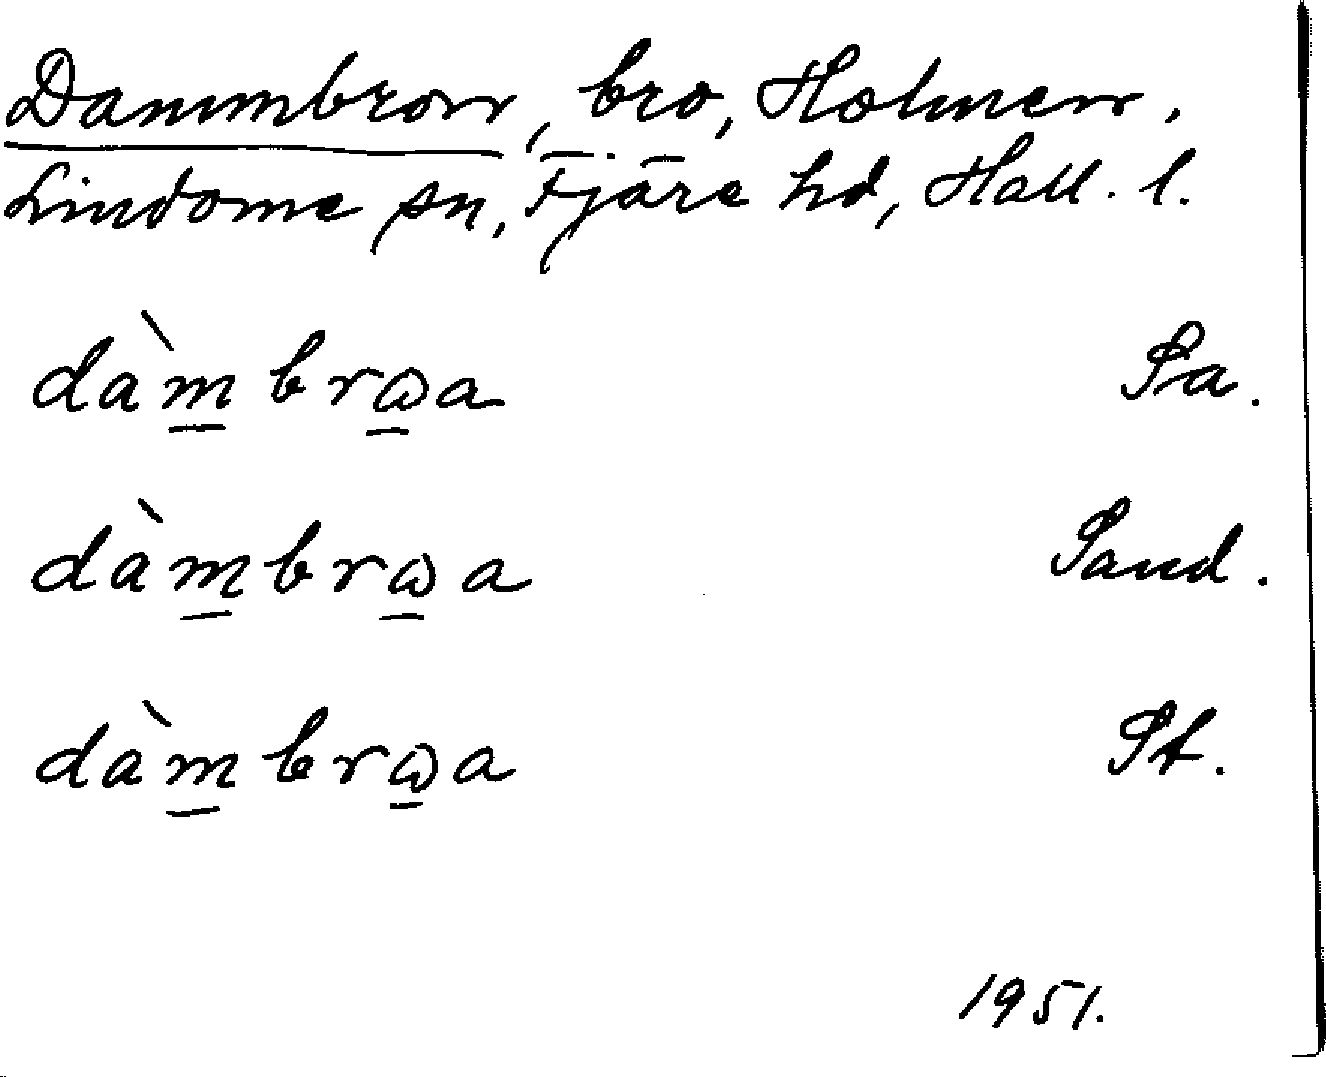 Dammbron, bro, Holmen.
Lindome sn, Fjäre hd, Hall. l.
dàm̲brω̲a Sa.
dàm̲brω̲a Sand.
dàm̲brω̲a St.
1951.